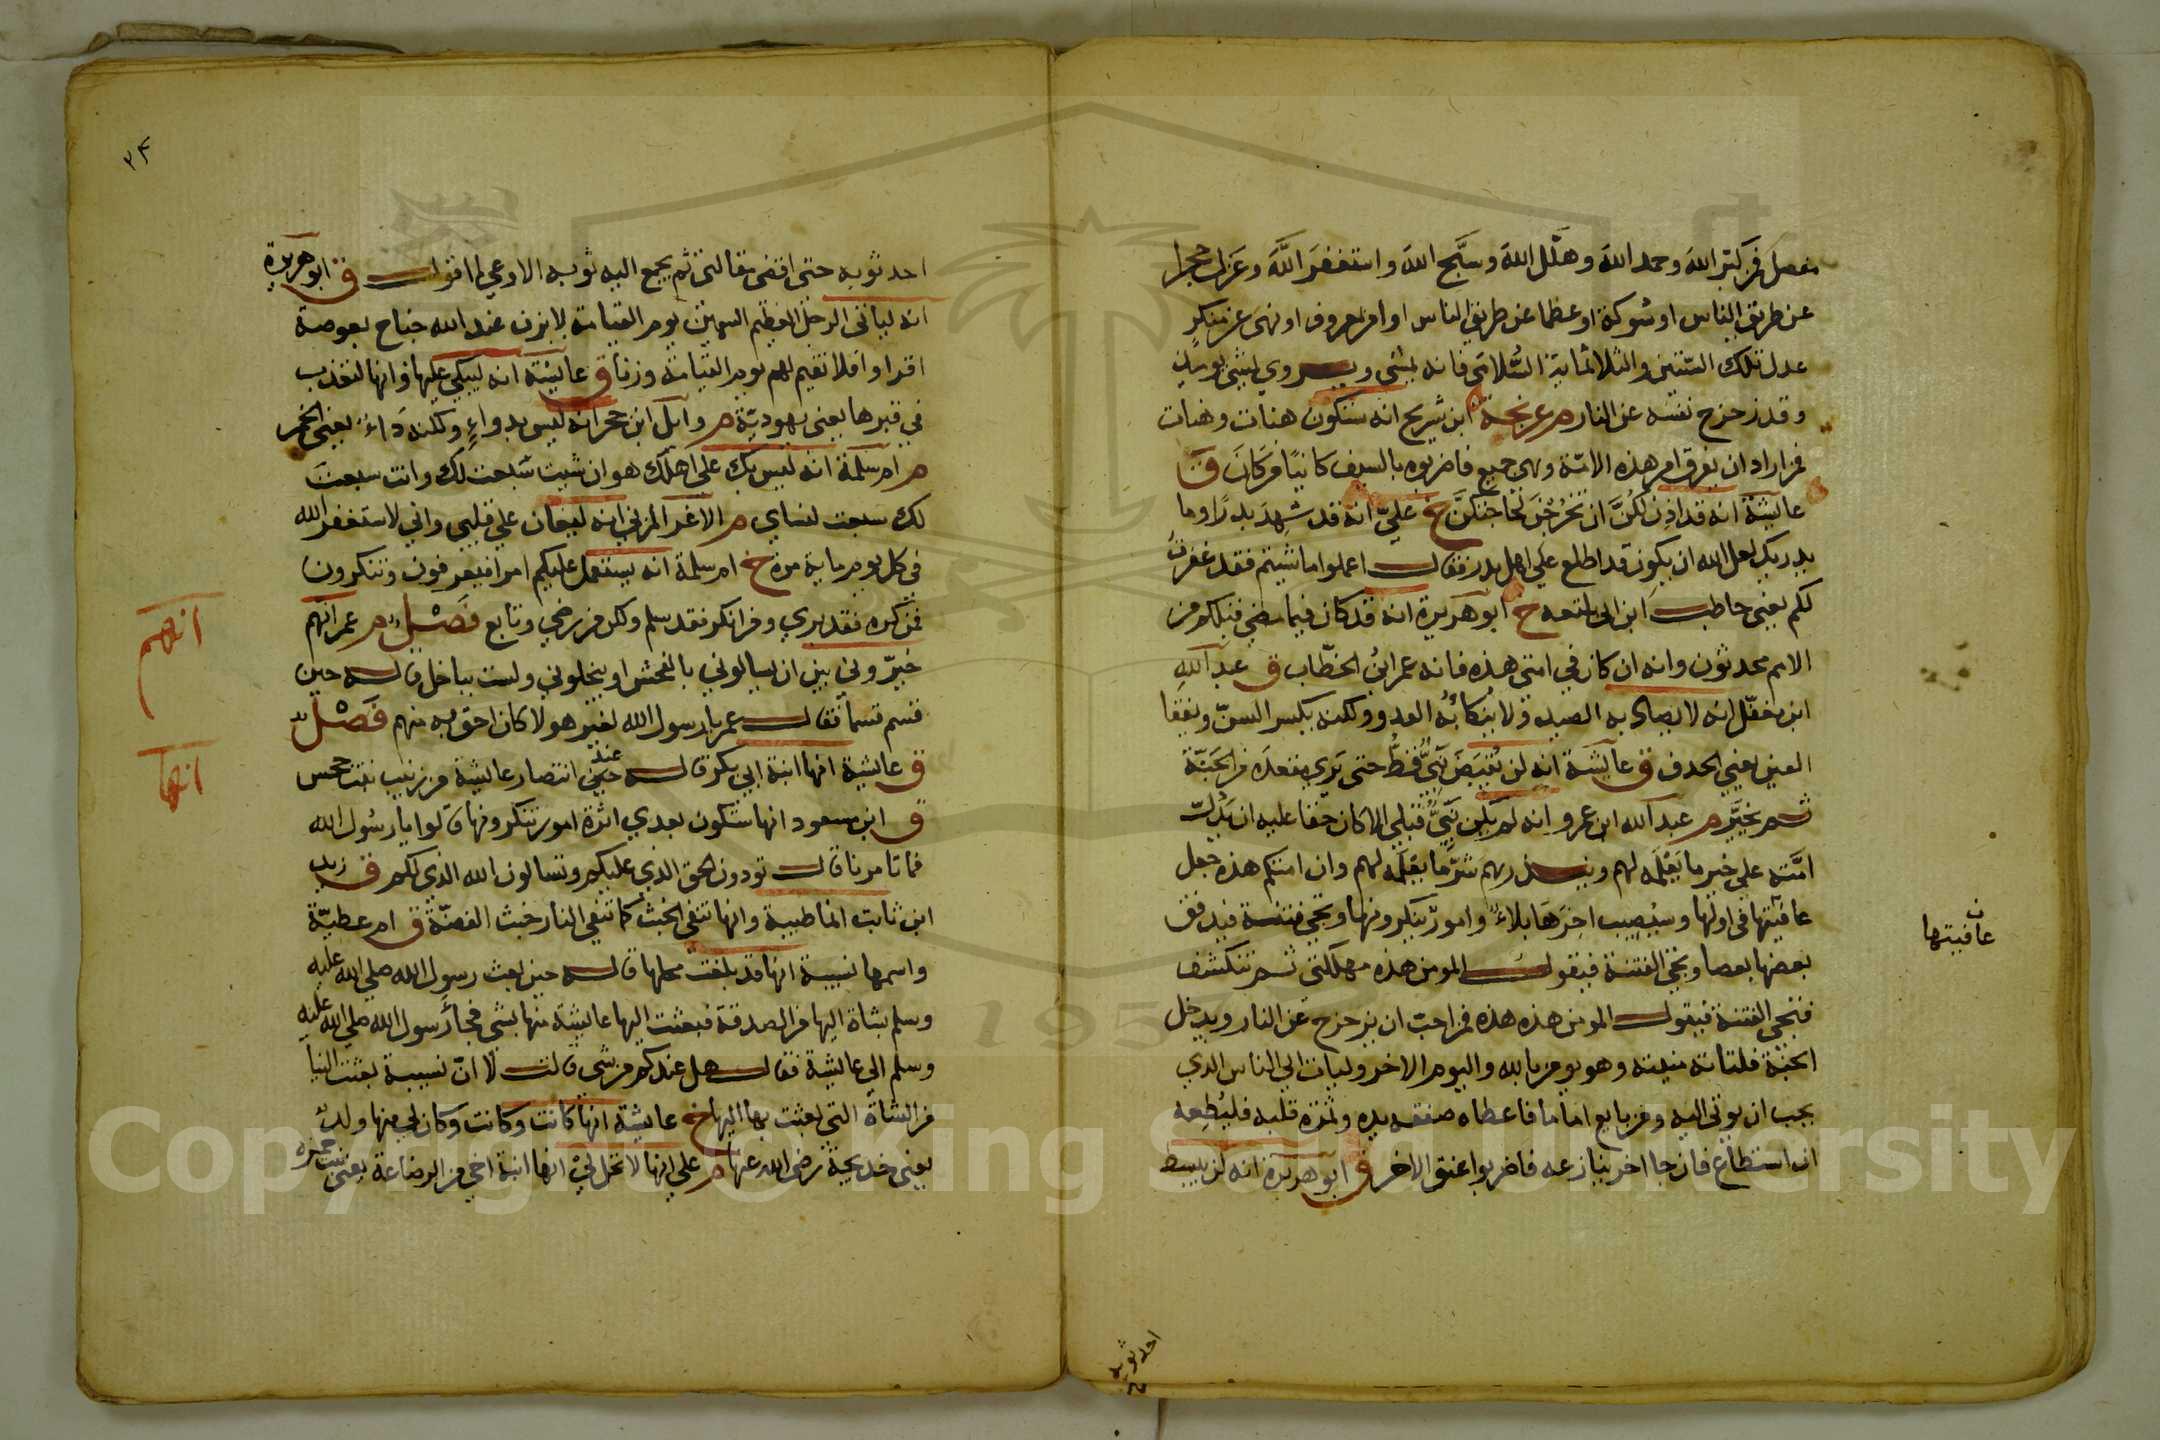 مفصل فمن كبّر الله وحمد الله وهلّل الله وسبّح الله واستغفر اللّه وعزل حجرا
عن طريق الناس او شوكة او عظما عن طريق الناس او امر بمعروف او نهى عن منكر
عدل تلك الستين والثلاثماية السُّلامى فانه يمشي ويروي يمشي يوميذ
وقد زحزح نفسه عن النار م عرفجة ابن شريح انه ستكون هنات وهنات
فمن اراد ان يفرق امر هذه الامة وهي جميع فاضربوه بالسيف كاينًا من كان ق
عايشة انه قد اذن لكُنَّ ان تخرُجْن لحاجتكنَّ خ عليّ انه قد شهد بدرًا وما
يدريك لعل الله ان يكون قد اطلع علي اهل بدر فقال اعملوا ما شيتم فقد غفرت
لكم يعني حاطب ابن ابي بلتعه خ ابو هريرة انه قد كان فيما مضي قبلكم من
الامم محدثون وانه ان كان في امتي هذه فانه عمر ابنُ الخطّاب ق عبد الله
ابن مغفّل انه لا يصاد به الصيد ولا ينكأ به العدو ولكنه يكسر السنّ ويفقا
العين يعني الخذف ق عايشة انه لن يُقبَضَ نبيٌّ قطُّ حتى يَري مقعدَه من الجَنّة
ثم يخيَّر م عبد الله ابن عمرو انه لم يكن نبيٌّ قبلي الا كان حقا عليه ان يدُلّ
امّته علي خير ما يَعْلَمه لهم وينذرهم شرّ ما يعلَمه لهم وان امتكم هذه جعل
عافيتها في اولها وسيُصيب اخِرَهَا بلاءٌ وامورٌ ينكرونها وتجي فتنة فيدفق
بعضها بعضا وتجي الفتنة فيقول المومن هذه مهلكتي ثم تنكشف
فتجي الفتنة فيقول المومن هذه هذه فمن احبّ ان يزحزح عن النار ويدخل
الجنّة فلتاته منيته وهو يومن بالله واليوم الاخر وليات الي الناس الذي
يحب ان يوتي اليه ومن بايع اماما فاعطاه صفقه يده وثمرة قلبه فليُطِعه
ان استطاع فان جا اخر ينازعه فاضربوا عنق الاخر ق ابو هريرة انه لن يبسط
عافيتها
احد ثوبه
٣٤
احد ثوبه حتى اقضي مقالتي ثم يجمع اليه ثوبه الا وعي ما اقول ق ابو هريرة
انه لياتي الرجل العظيم السمين يوم القيامة لا يزن عند الله جناح بعوضة
اقراوا فلا نقيم لهم يوم القيامة وزنا ق عايشة انه ليبكي عليها وانها لتعذب
في قبرها يعني يهوديّة م وايل ابن حجر انه ليس بدواءٍ ولكنه دَاءٌ يعني الخمر
م ام سلمة انه ليس بك على اهلك هوان شيت سَبعت لك وانت سبعت
لك سبعت لنساي م الاغر المزني انه ليغان علي قلبي واني لاستغفر الله
في كل يوم ماية مرة خ ام سلمة انه يستعمل عليكم امرا فتعرفون وتنكرون
فمن كره فقد بري ومن انكر فقد سلم ولكن من رضي وتابع فَصْل م عمر انهم
خيّروني بين ان يسالوني بالفحش او يبخلوني ولست بباخل قاله حين
قسم قسما فقال عمر يا رسول الله لغير هولا كان احق به منهم فَصْل
ق عايشة انها ابنة ابي بكر قاله حين عند انتصار عايشة من زينب بنت جحس
ق ابن مسعود انها ستكون بعدي اثرة امور تنكرونها قالوا يا رسول الله
فما تامرنا قال تودون الحق الذي عليكم وتسالون الله الذي لكم ق زيد
ابن ثابت انها طيبة وانها تنفي الخبث كما تنفي النار خبث الفضّة ق ام عطيّة
واسمها نسيبة انها قد بلغت محلها قاله حين بعث رسول الله صلي الله عليه
وسلم بشاة اليها من الصدقة فبعثت الي عايشة منها بشي فجا رسول الله صلي الله عليه
وسلم الي عايشة فقال هل عندكم من شي قالت لا ان نسيبة بعثت الينا
من الشاة التي بعثت بها اليها خ عايشة انها كانت وكانت وكان لي منها ولد
يعني خديجة رضي الله عنها م علي انها لا تحل لي انها ابنة اخي من الرضاعة يعني بنت حمزة
انهم
انها